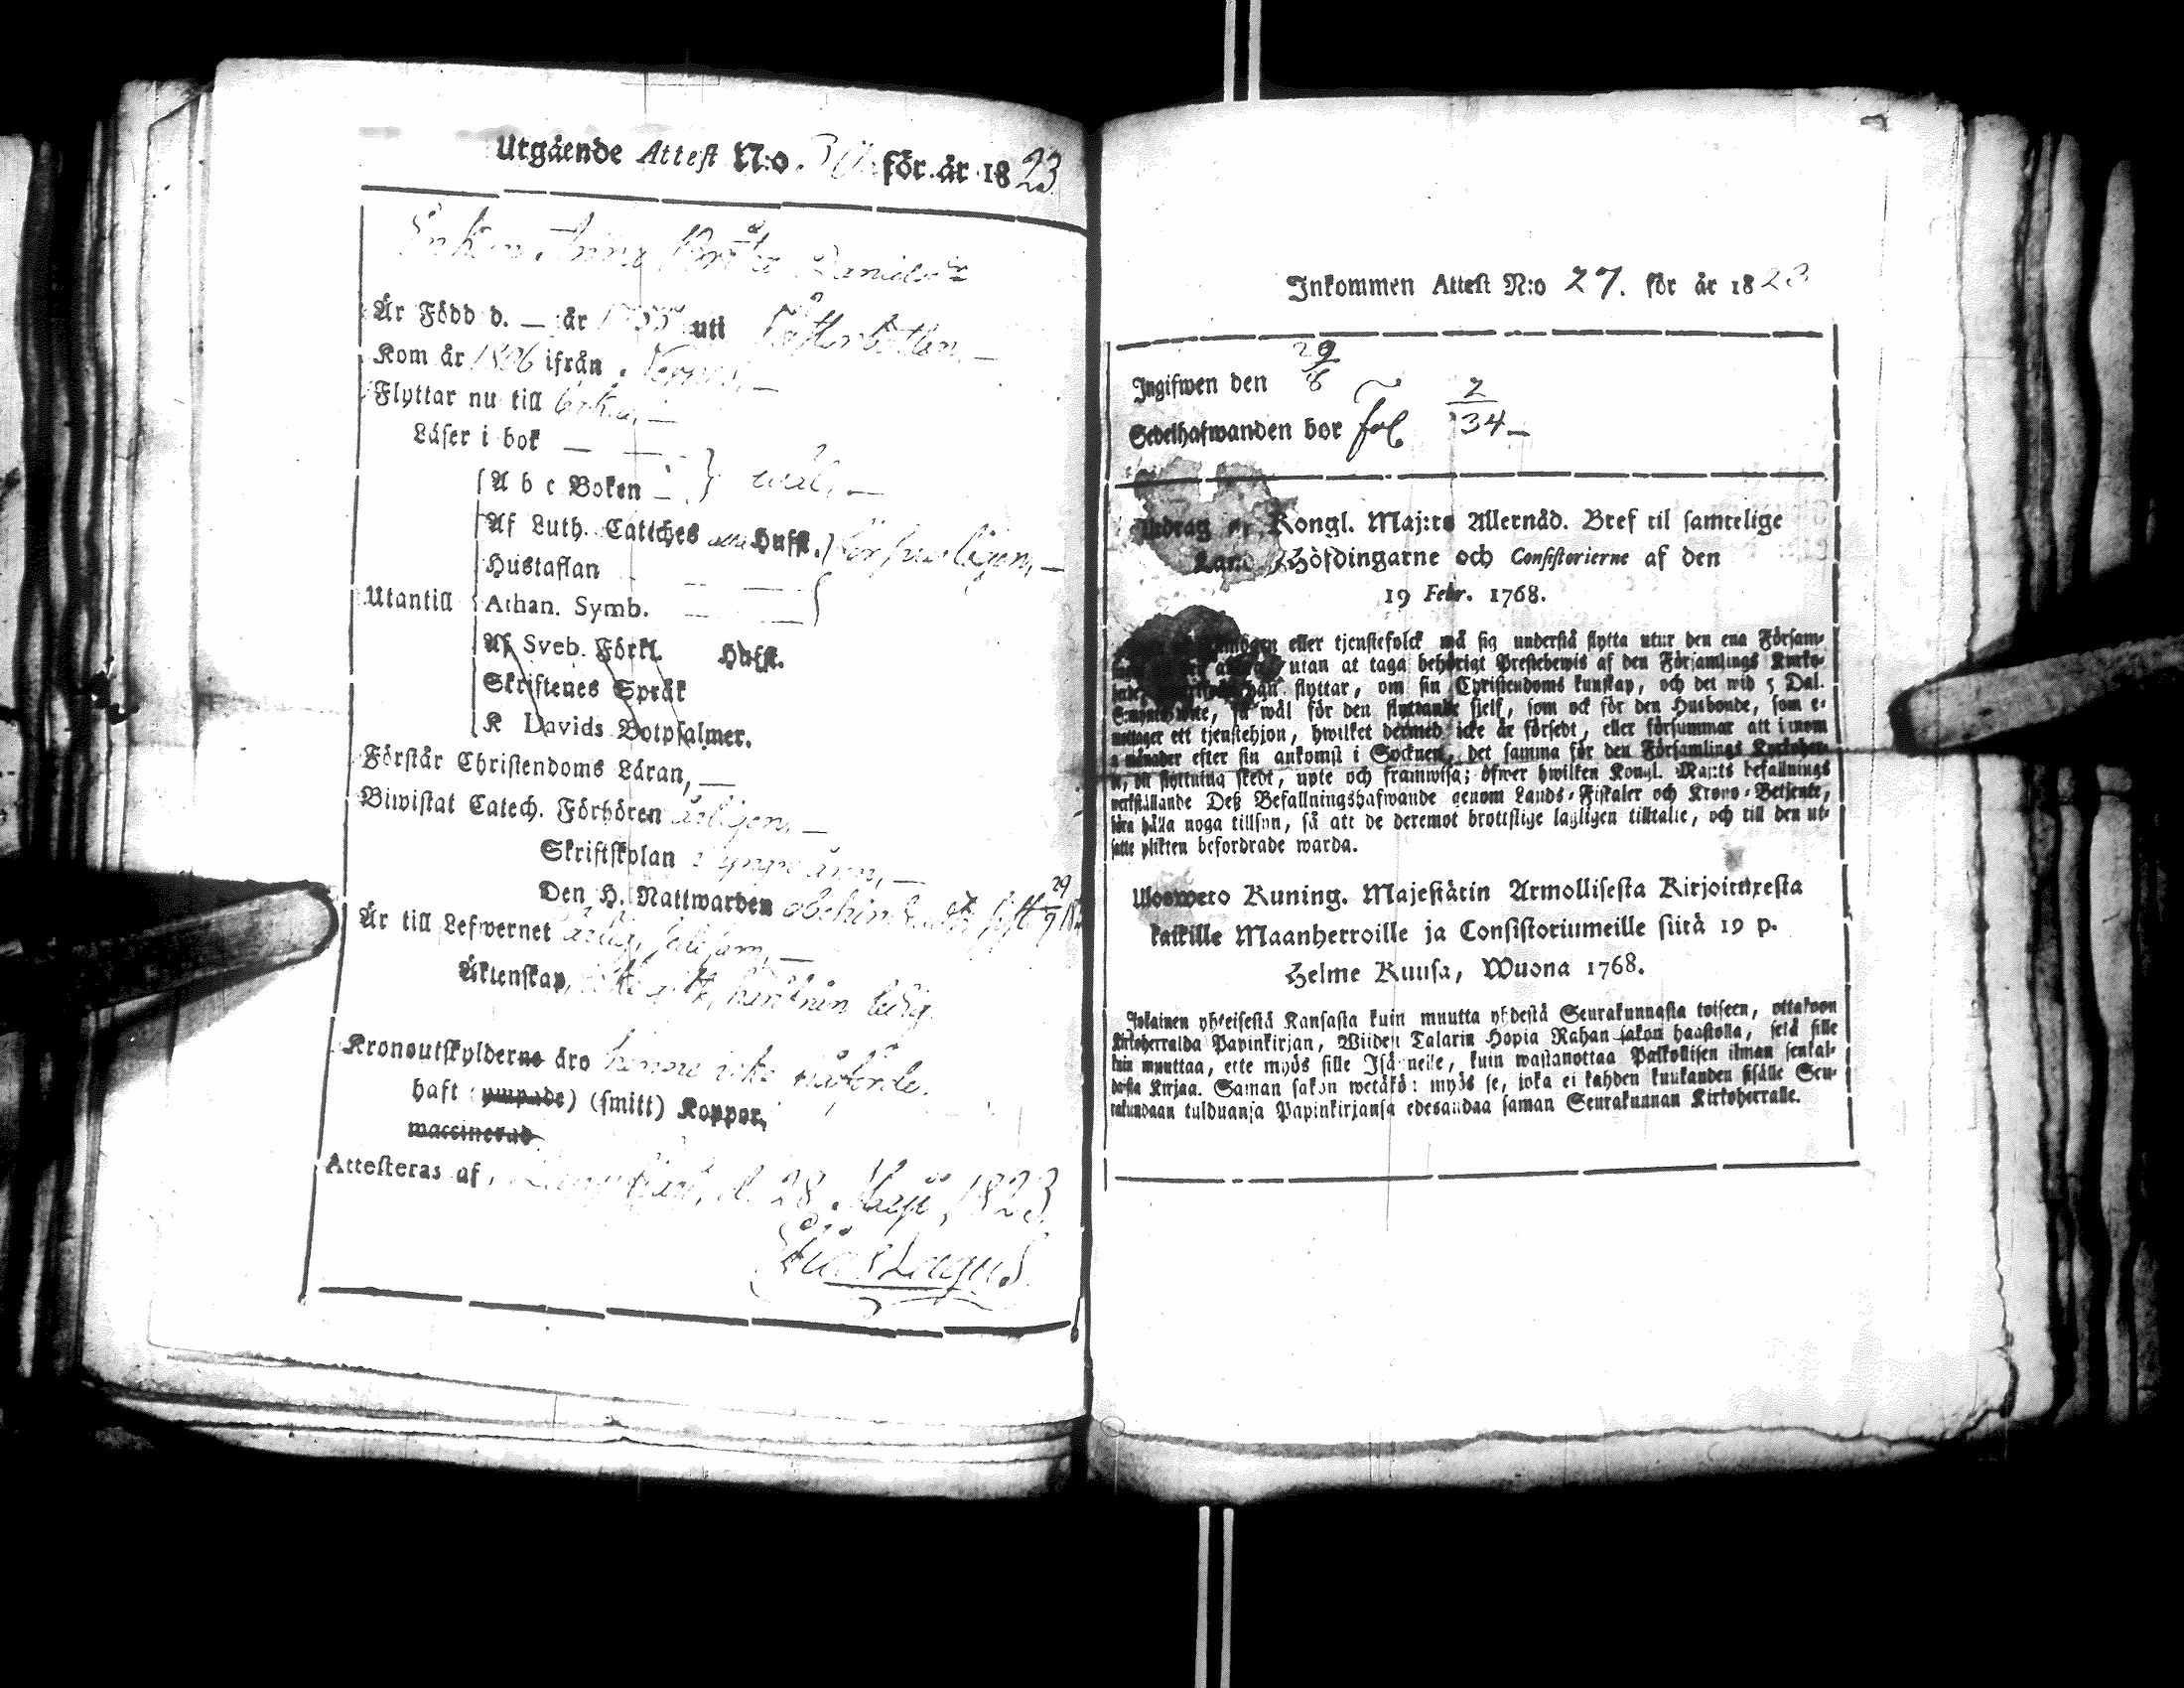 Utgående Attest N:o för år 1823
Enkan Anna Brita Danielsdr
Är Född d. — år 1755 uti Österbotten, —
Kom år 1806 ifrån
Flyttar nu till
Läser i bok —
A b c Boken — } wäl, —
Af Luth. Catiches Hufst. försvarligen, —
Hustaflan
Utantill Athan. Symb.
Af Sveb. Förkl. Hufst.
Skriftenes Språk
K Davids Botpsalmer.
Förstår Christendoms Läran, —
Biwistat Catech. Förhören årligen, —
Skriftskolan i yngre åren, —
Den H. Nattwarden obehindradt, sist 29/9
Är till Lefwernet ärlig, —
Äktenskap, icke gift, härifrån ledig.
Kronoutskylderne äro henne icke påförde.
haft (ympade) (smitt) Koppor,
waccinerad
Attesteras af, d. 28 Maji, 1823.
Elias Lagus
Inkommen Attest N:o 27. för år 1823
Ingifwen den 29/8
Sedelhafwanden bor fol 2/34 —
Utdrag Kongl. Maj:ts Allernåd. Bref til samtelige
Land Höfdingarne och Consistorierne af den
19 Febr. 1768.
eller tjenstefolck må sig understå flytta utur den ena Försam-
utan at taga behörigt Prestebewis af den Församlings Kyrko-
flyttar, om sin Christendoms kunskap, och det wid 5 Dal.
wite, så wäl för den flyttande sjelf, som ock för den Husbonde, som e-
mottager ett tjenstehjon, hwilket dermed icke är försedt, eller försummar att innom
månader efter sin ankomst i Socknen, det samma för den Församlings Kyrkoher-
flyttning skedt, upte och framwisa; öfwer hwilken Kongl. Maj:ts befallnings
werkställande Deß Befallningshafwande genom Lands-Fiskaler och Krono-Betjente,
böra hålla noga tillsyn, så att de deremot brottslige lagligen tilltalte, och till den ut-
satte plikten befordrade warda.
Uloswеto Kuning. Majestätin Armollisesta Kirjoituxesta
kaikille Maanherroille ja Consistoriumeille siitä 19 p.
Helme Kuusa, Wuona 1768.
Jokainen yhteisestä Kansasta kuin muutta yhdestä Seurakunnasta toiseen, ottakoon
Kirkoherralda Papinkirjan, Wiiden Talarin Hopia Rahan sakon haastolla, setä sille
kuin muuttaa, ette myös sille Isännelle, kuin wastanottaa Palkollisen ilman senkal-
daista Kirjaa. Saman sakon wetäkön myös se, joka ei kahden kuukauden sisälle Seu-
rakundaan tulduanja Papinkirjansa edesandaa saman Seurakunnan Kirkoherralle.